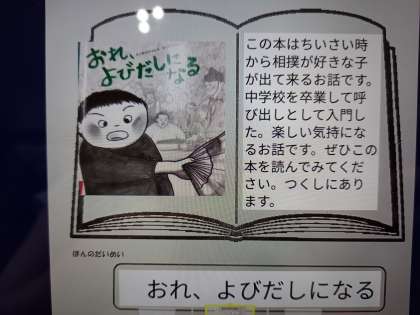 おれ、
よびだしに
なる
この本はちいさい時
から相撲が好きな子
が出て来るお話です。
中学校を卒業して呼
び出しとして入門し
た。楽しい気持にな
るお話です。ぜひこの
本を読んでみてくだ
さい。つくしにあり
ます。
ほんのだいめい
おれ、よびだしになる